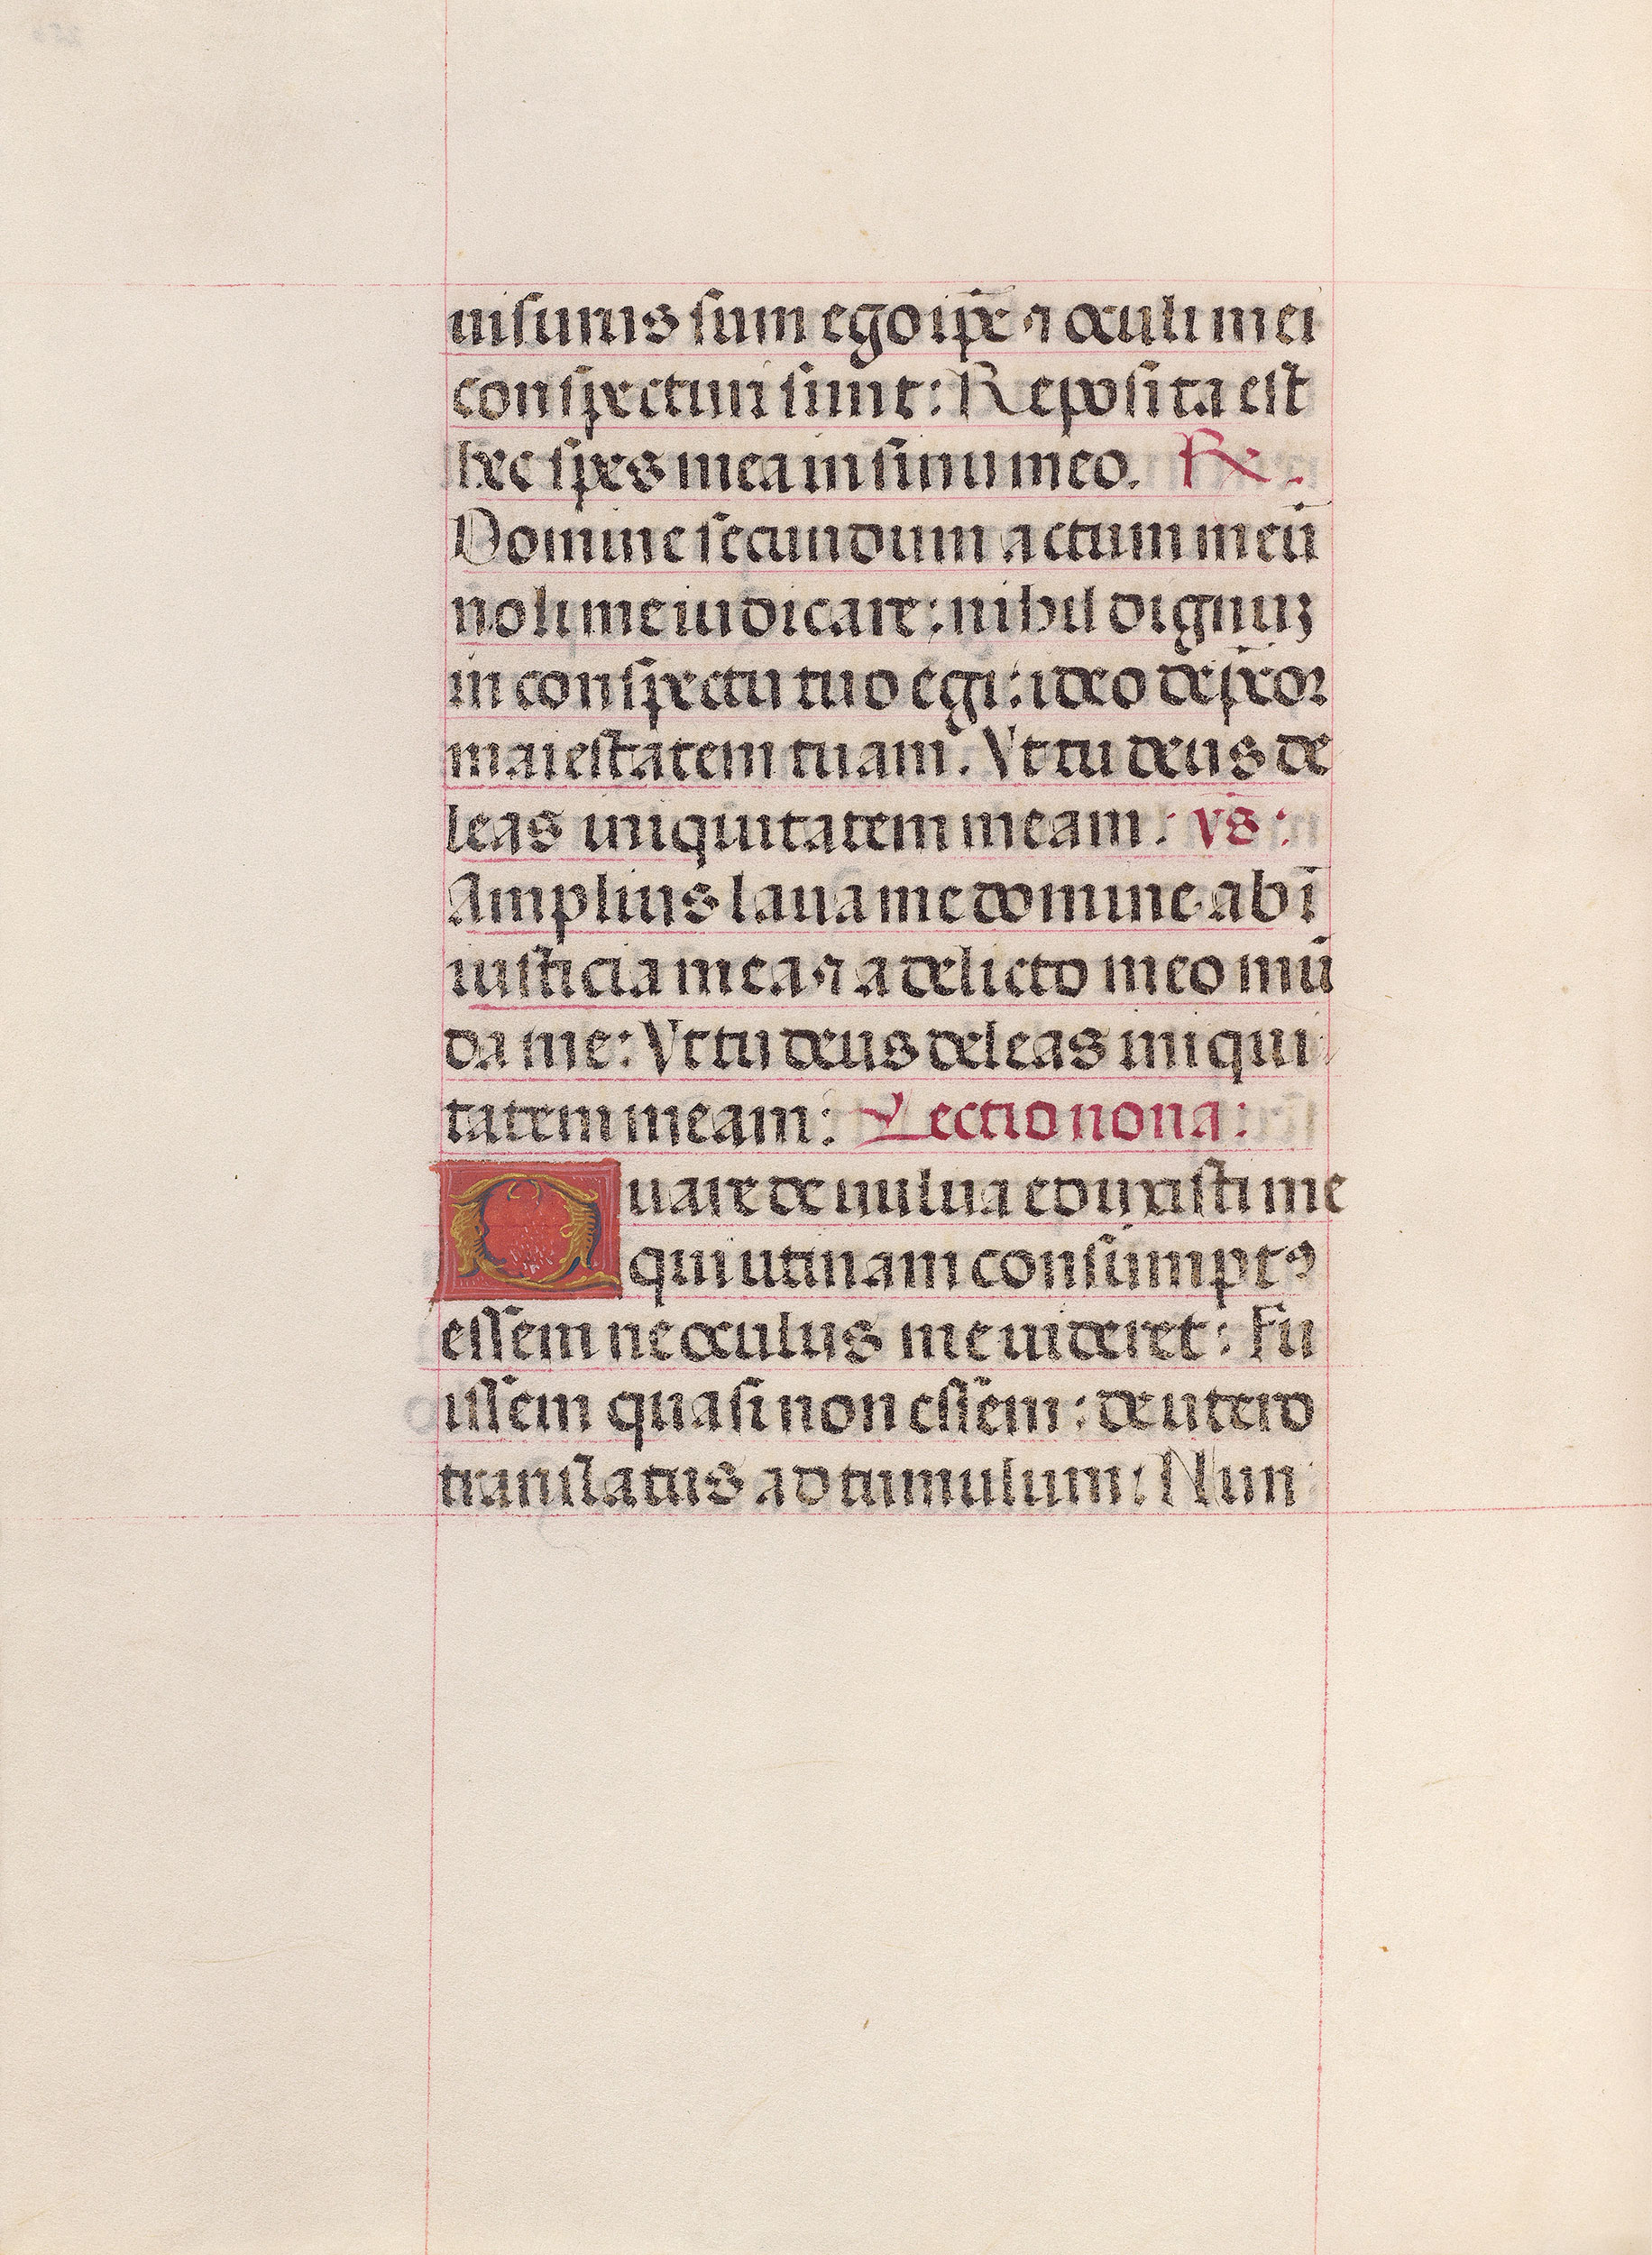 uisurus sum ego ip̄e ⁊ oculi mei
conspecturi sunt: Reposita est
hec spes mea in sinu meo. ℟.
Domine secundum actum meū
noli me iudicare: nihil dignuꝫ
in conspectu tuo egi: ideo dep̄cor
maiestatem tuam. Vt tu deus de
leas iniquitatem meam: vs̄:
Amplius laua me domine ab ī
iusticia mea ⁊ a delicto meo mū
da me: Vt tu deus deleas iniqui
tatem meam: Lectio nona:
Quare de uulua eduxisti me
qui utinam consumptꝰ
essem ne oculus me uideret: Fu
issem quasi non essem: de utero
translatus ad tumulum: Nun